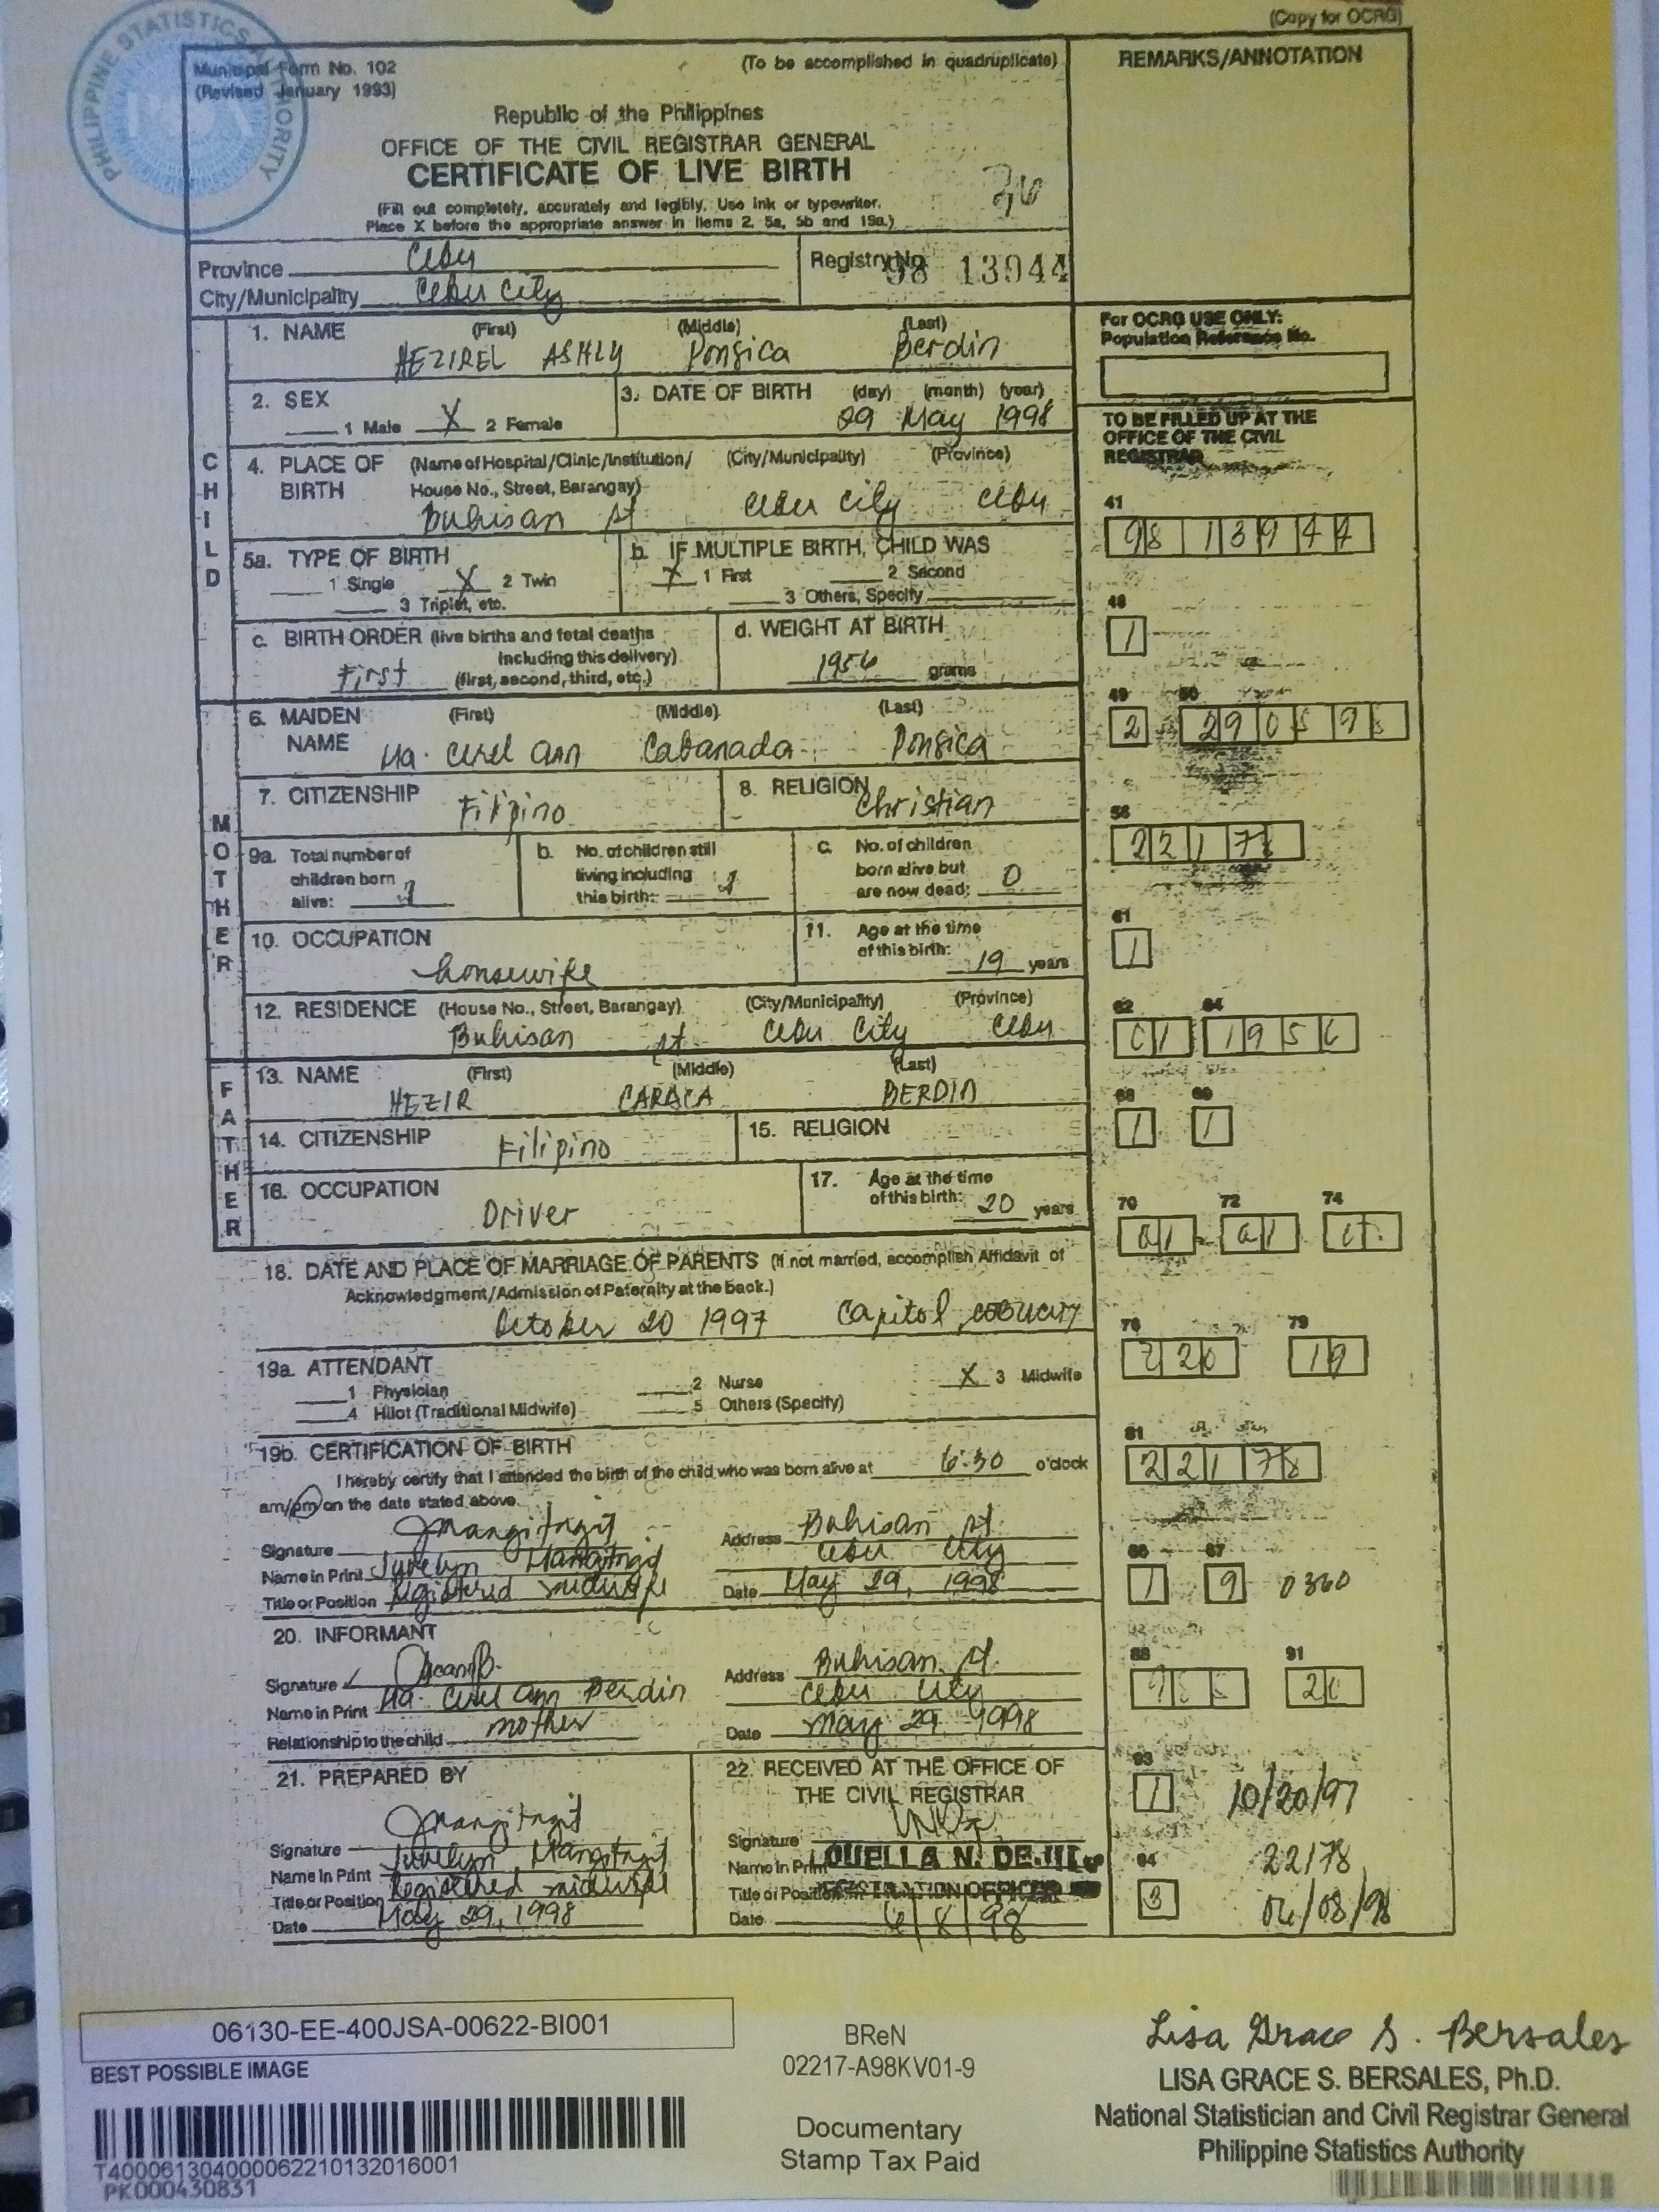 (Copy for OCRG)
PHILIPPINE STATISTICS AUTHORITY
Municipal Form No. 102
(Revised January 1993)
(To be accomplished in quadruplicate)
REMARKS/ANNOTATION
Republic of the Philippines
OFFICE OF THE CIVIL REGISTRAR GENERAL
CERTIFICATE OF LIVE BIRTH
(Fill out completely, accurately and legibly. Use ink or typewriter.
Place X before the appropriate answer in items 2, 5a, 5b and 19a.)
Province Cebu
City/Municipality Cebu City
Registry No. 98 13944
CHILD
1. NAME (First) (Middle) (Last)
HEZIREL ASHLY Ponsica Berdin
For OCRG USE ONLY:
Population Reference No.
2. SEX
1 Male X 2 Female
3. DATE OF BIRTH (day) (month) (year)
29 May 1998
TO BE FILLED UP AT THE
OFFICE OF THE CIVIL
REGISTRAR
4. PLACE OF BIRTH (Name of Hospital/Clinic/Institution/ House No., Street, Barangay) (City/Municipality) (Province)
Buhisan st Cebu City Cebu
41
98 13944
5a. TYPE OF BIRTH
1 Single X 2 Twin
3 Triplet, etc.
b. IF MULTIPLE BIRTH, CHILD WAS
X 1 First 2 Second
3 Others, Specify
48
1
c. BIRTH ORDER (live births and fetal deaths
including this delivery)
First (first, second, third, etc.)
d. WEIGHT AT BIRTH
1956 grams
49 50
2 290598
MOTHER
6. MAIDEN NAME (First) (Middle) (Last)
Ma. Cirel Ann Cabanada Ponsica
7. CITIZENSHIP Filipino
8. RELIGION Christian
56
22178
9a. Total number of
children born
alive:
b. No. of children still
living including
this birth:
c. No. of children
born alive but
are now dead: 0
61
1
10. OCCUPATION
housewife
11. Age at the time
of this birth: 19 years
12. RESIDENCE (House No., Street, Barangay) (City/Municipality) (Province)
Buhisan st Cebu City Cebu
62 64
01 1956
FATHER
13. NAME (First) (Middle) (Last)
HEZIR BERDIN
68 69
1 1
14. CITIZENSHIP Filipino
15. RELIGION
16. OCCUPATION
Driver
17. Age at the time
of this birth: 20 years
70 72 74
01 01
18. DATE AND PLACE OF MARRIAGE OF PARENTS (If not married, accomplish Affidavit of
Acknowledgment/Admission of Paternity at the back.)
October 20 1997 Capitol, CEBU CITY
76 79
220 19
19a. ATTENDANT
1 Physician 2 Nurse X 3 Midwife
4 Hilot (Traditional Midwife) 5 Others (Specify)
19b. CERTIFICATION OF BIRTH
I hereby certify that I attended the birth of the child who was born alive at 6:30 o'clock
am/pm on the date stated above.
81
22178
Signature
Name in Print Juvelyn Mangitngit
Title or Position Registered midwife
Address Buhisan st.
Cebu City
Date May 29, 1998
86 87
1 9 0360
20. INFORMANT
Signature
Name in Print Ma. Cirel Ann Berdin
Relationship to the child mother
Address Buhisan st.
Cebu City
Date May 29 1998
88 91
20
21. PREPARED BY
Signature
Name in Print Juvelyn Mangitngit
Title or Position Registered midwife
Date May 29, 1998
22. RECEIVED AT THE OFFICE OF
THE CIVIL REGISTRAR
Signature
Name in Print
Title or Position REGISTRATION OFFICER
Date 6/8/98
93
1 10/20/97
94
22178
3 06/08/98
06130-EE-400JSA-00622-BI001
BEST POSSIBLE IMAGE
T400061304000062210132016001
PK000430831
BReN
02217-A98KV01-9
Documentary
Stamp Tax Paid
Lisa Grace S. Bersales
LISA GRACE S. BERSALES, Ph.D.
National Statistician and Civil Registrar General
Philippine Statistics Authority